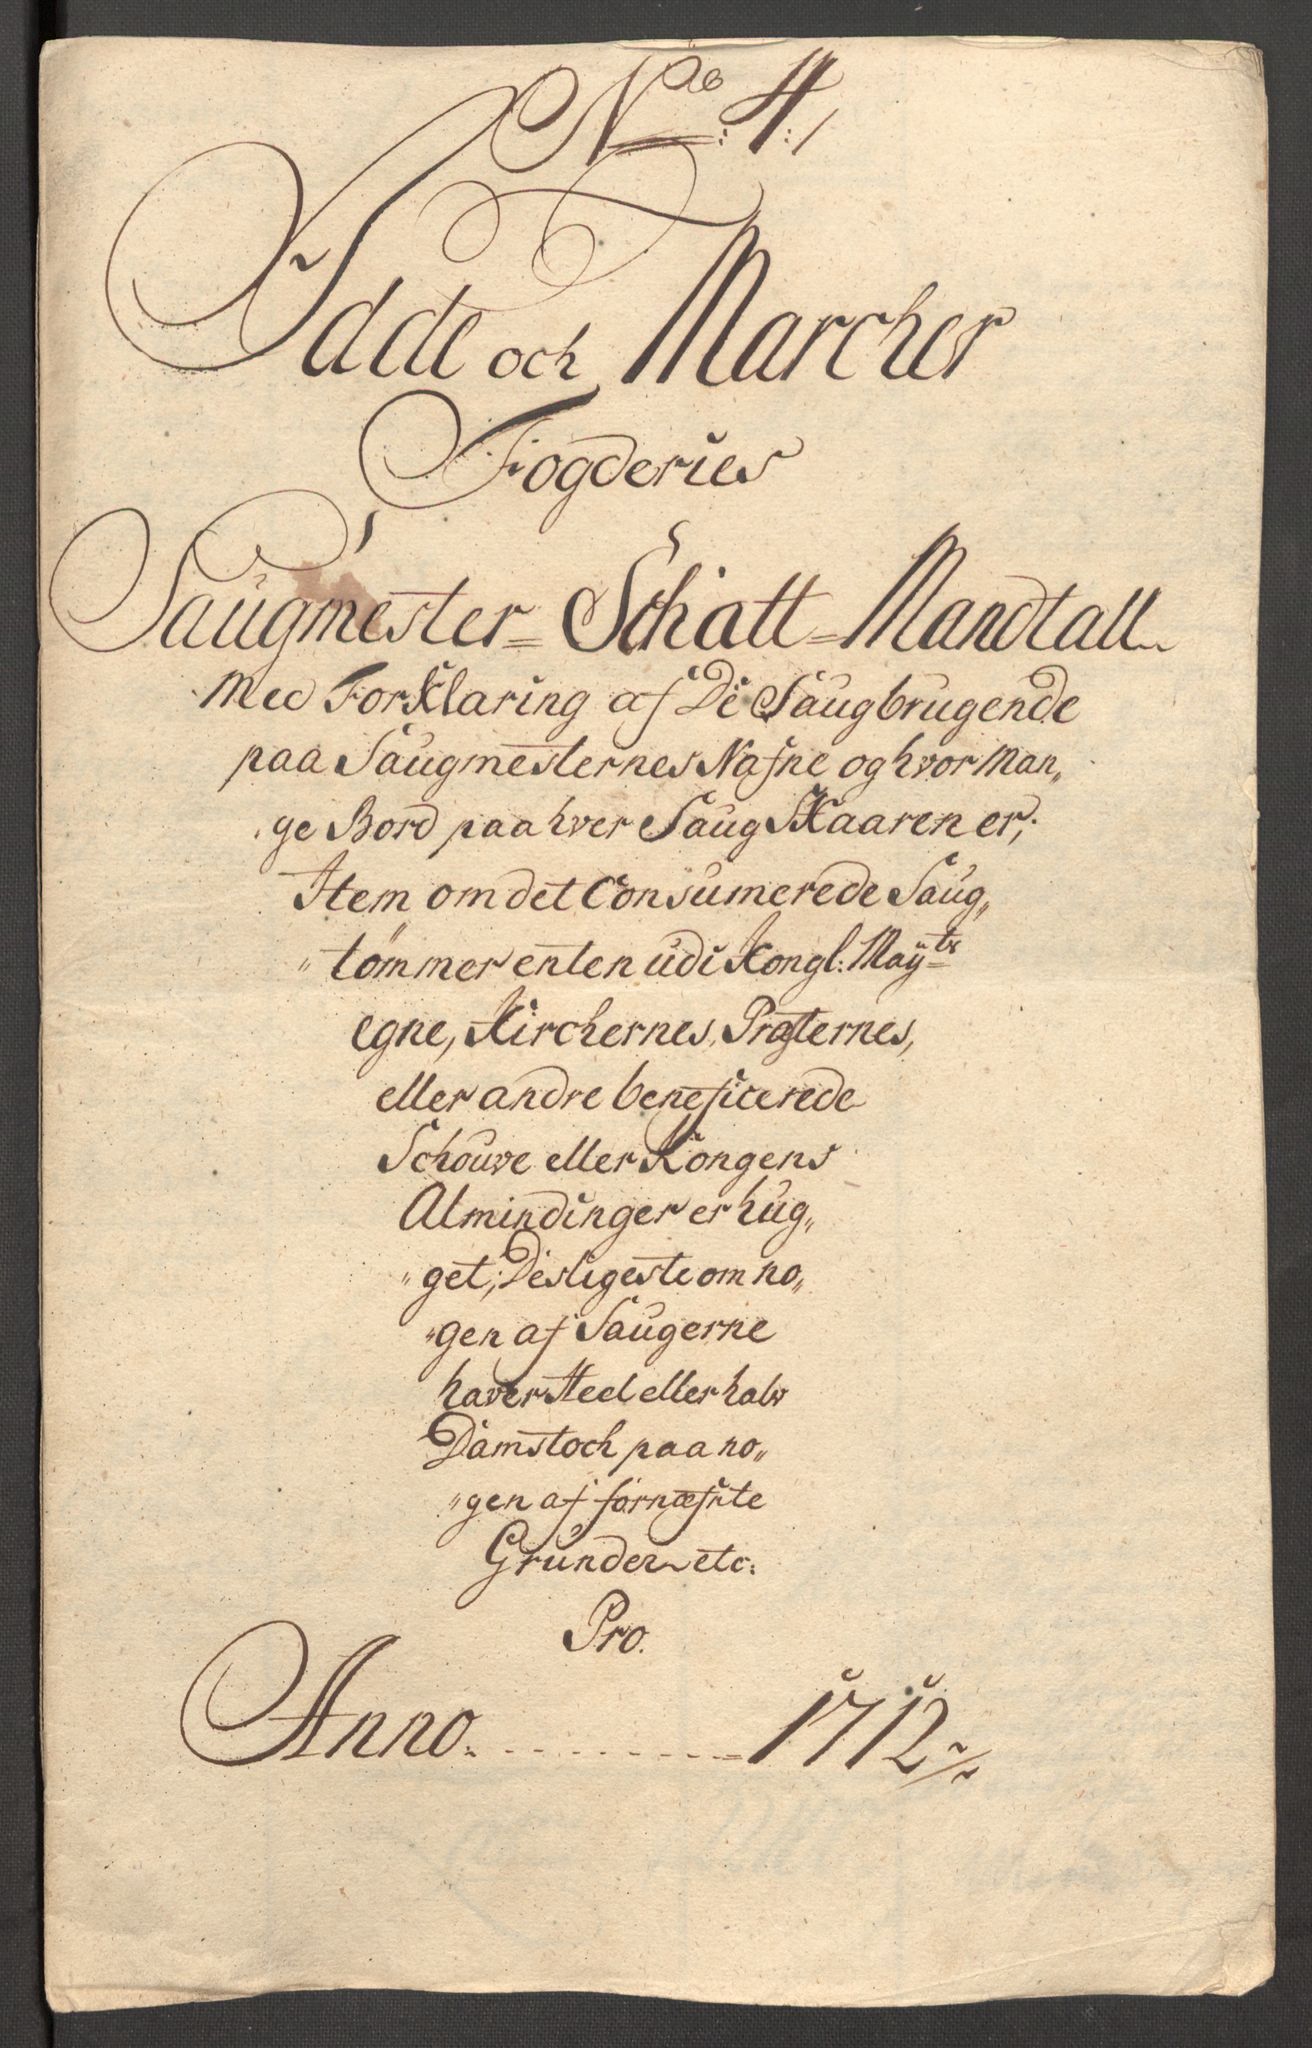 No: 4:/
Idde och Marcher
Fogderies
Saugmester=Schatt=Mandtall
Med Forklaring af De Saugbrugende
paa Saugmesternes Nafne og hvor Man„
ge Bord paa hver Saug Skaaren er,
Item om det Consumerede Saug„
„tömmer enten udi Kongl: Maÿts
egne, Kirchernes, Præsternes,
eller andre beneficerede
Schouve eller Kongens
Almindinger er hug„
„get; Desligeste om no„
„gen af Saugerne
haver Heel eller halv
Damstoch paa no„
„gen af fornæfnte
Grunder etc:
Pro.
Anno. ......... = 1712